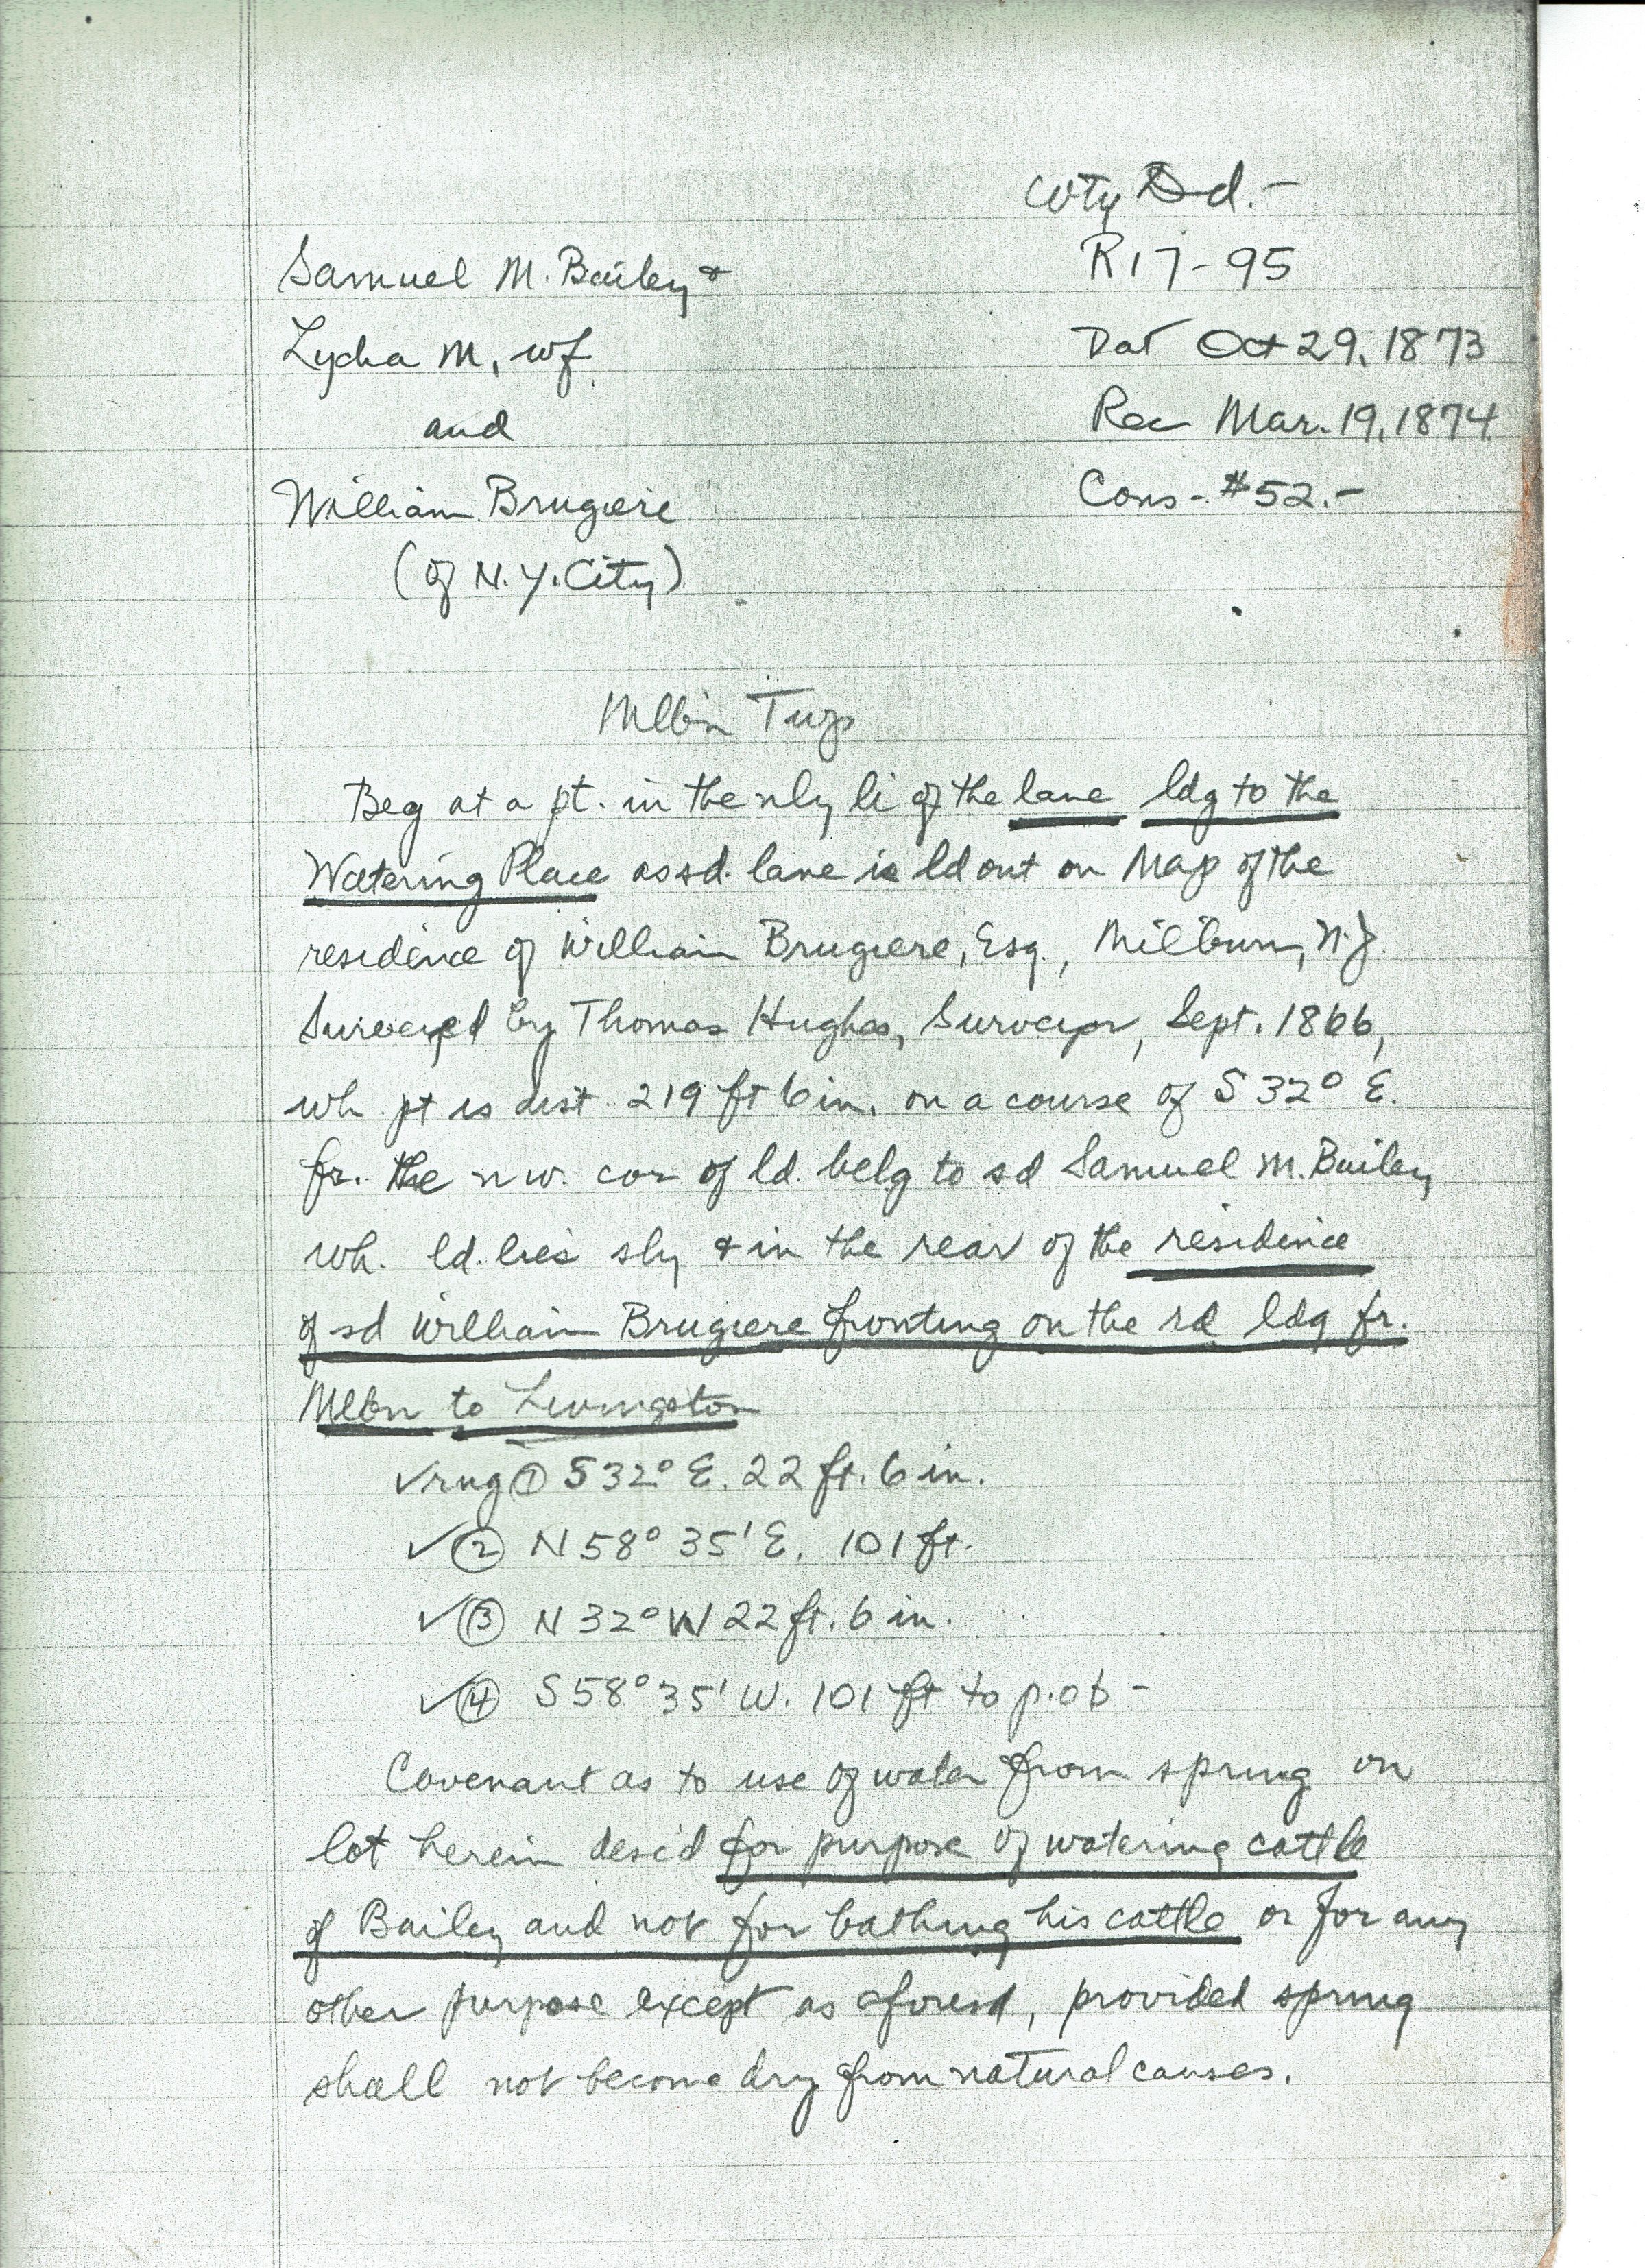 Wty Dd.-
Samuel M. Bailey &
R17-95
Lydia M, wf
Dat Oct 29, 1873
and
Rec Mar. 19, 1874
William Brugiere
Cons- $52.-
(of N.Y. City)
Mlbn Twp
Beg at a pt. in the nly li of the lane ldg to the
Watering Place as sd. lane is ld out on Map of the
residence of William Brugiere, Esq., Milburn, N.J.
Surveyed by Thomas Hughes, Surveyor, Sept. 1866,
wh. pt is dist. 219 ft 6 in. on a course of S 32° E.
fr. the nw. cor of ld. belg to sd Samuel M. Bailey
wh. ld. lies sly & in the rear of the residence
of sd William Brugiere fronting on the rd ldg fr.
Mlbn to Livingston
✓rng ① S 32° E. 22 ft. 6 in.
✓② N 58° 35' E. 101 ft.
✓③ N 32° W 22 ft. 6 in.
✓④ S 58° 35' W. 101 ft to p.ob -
Covenant as to use of water from spring on
lot herein desc'd for purpose of watering cattle
of Bailey and not for bathing his cattle or for any
other purpose except as aforesd, provided spring
shall not become dry from natural causes.